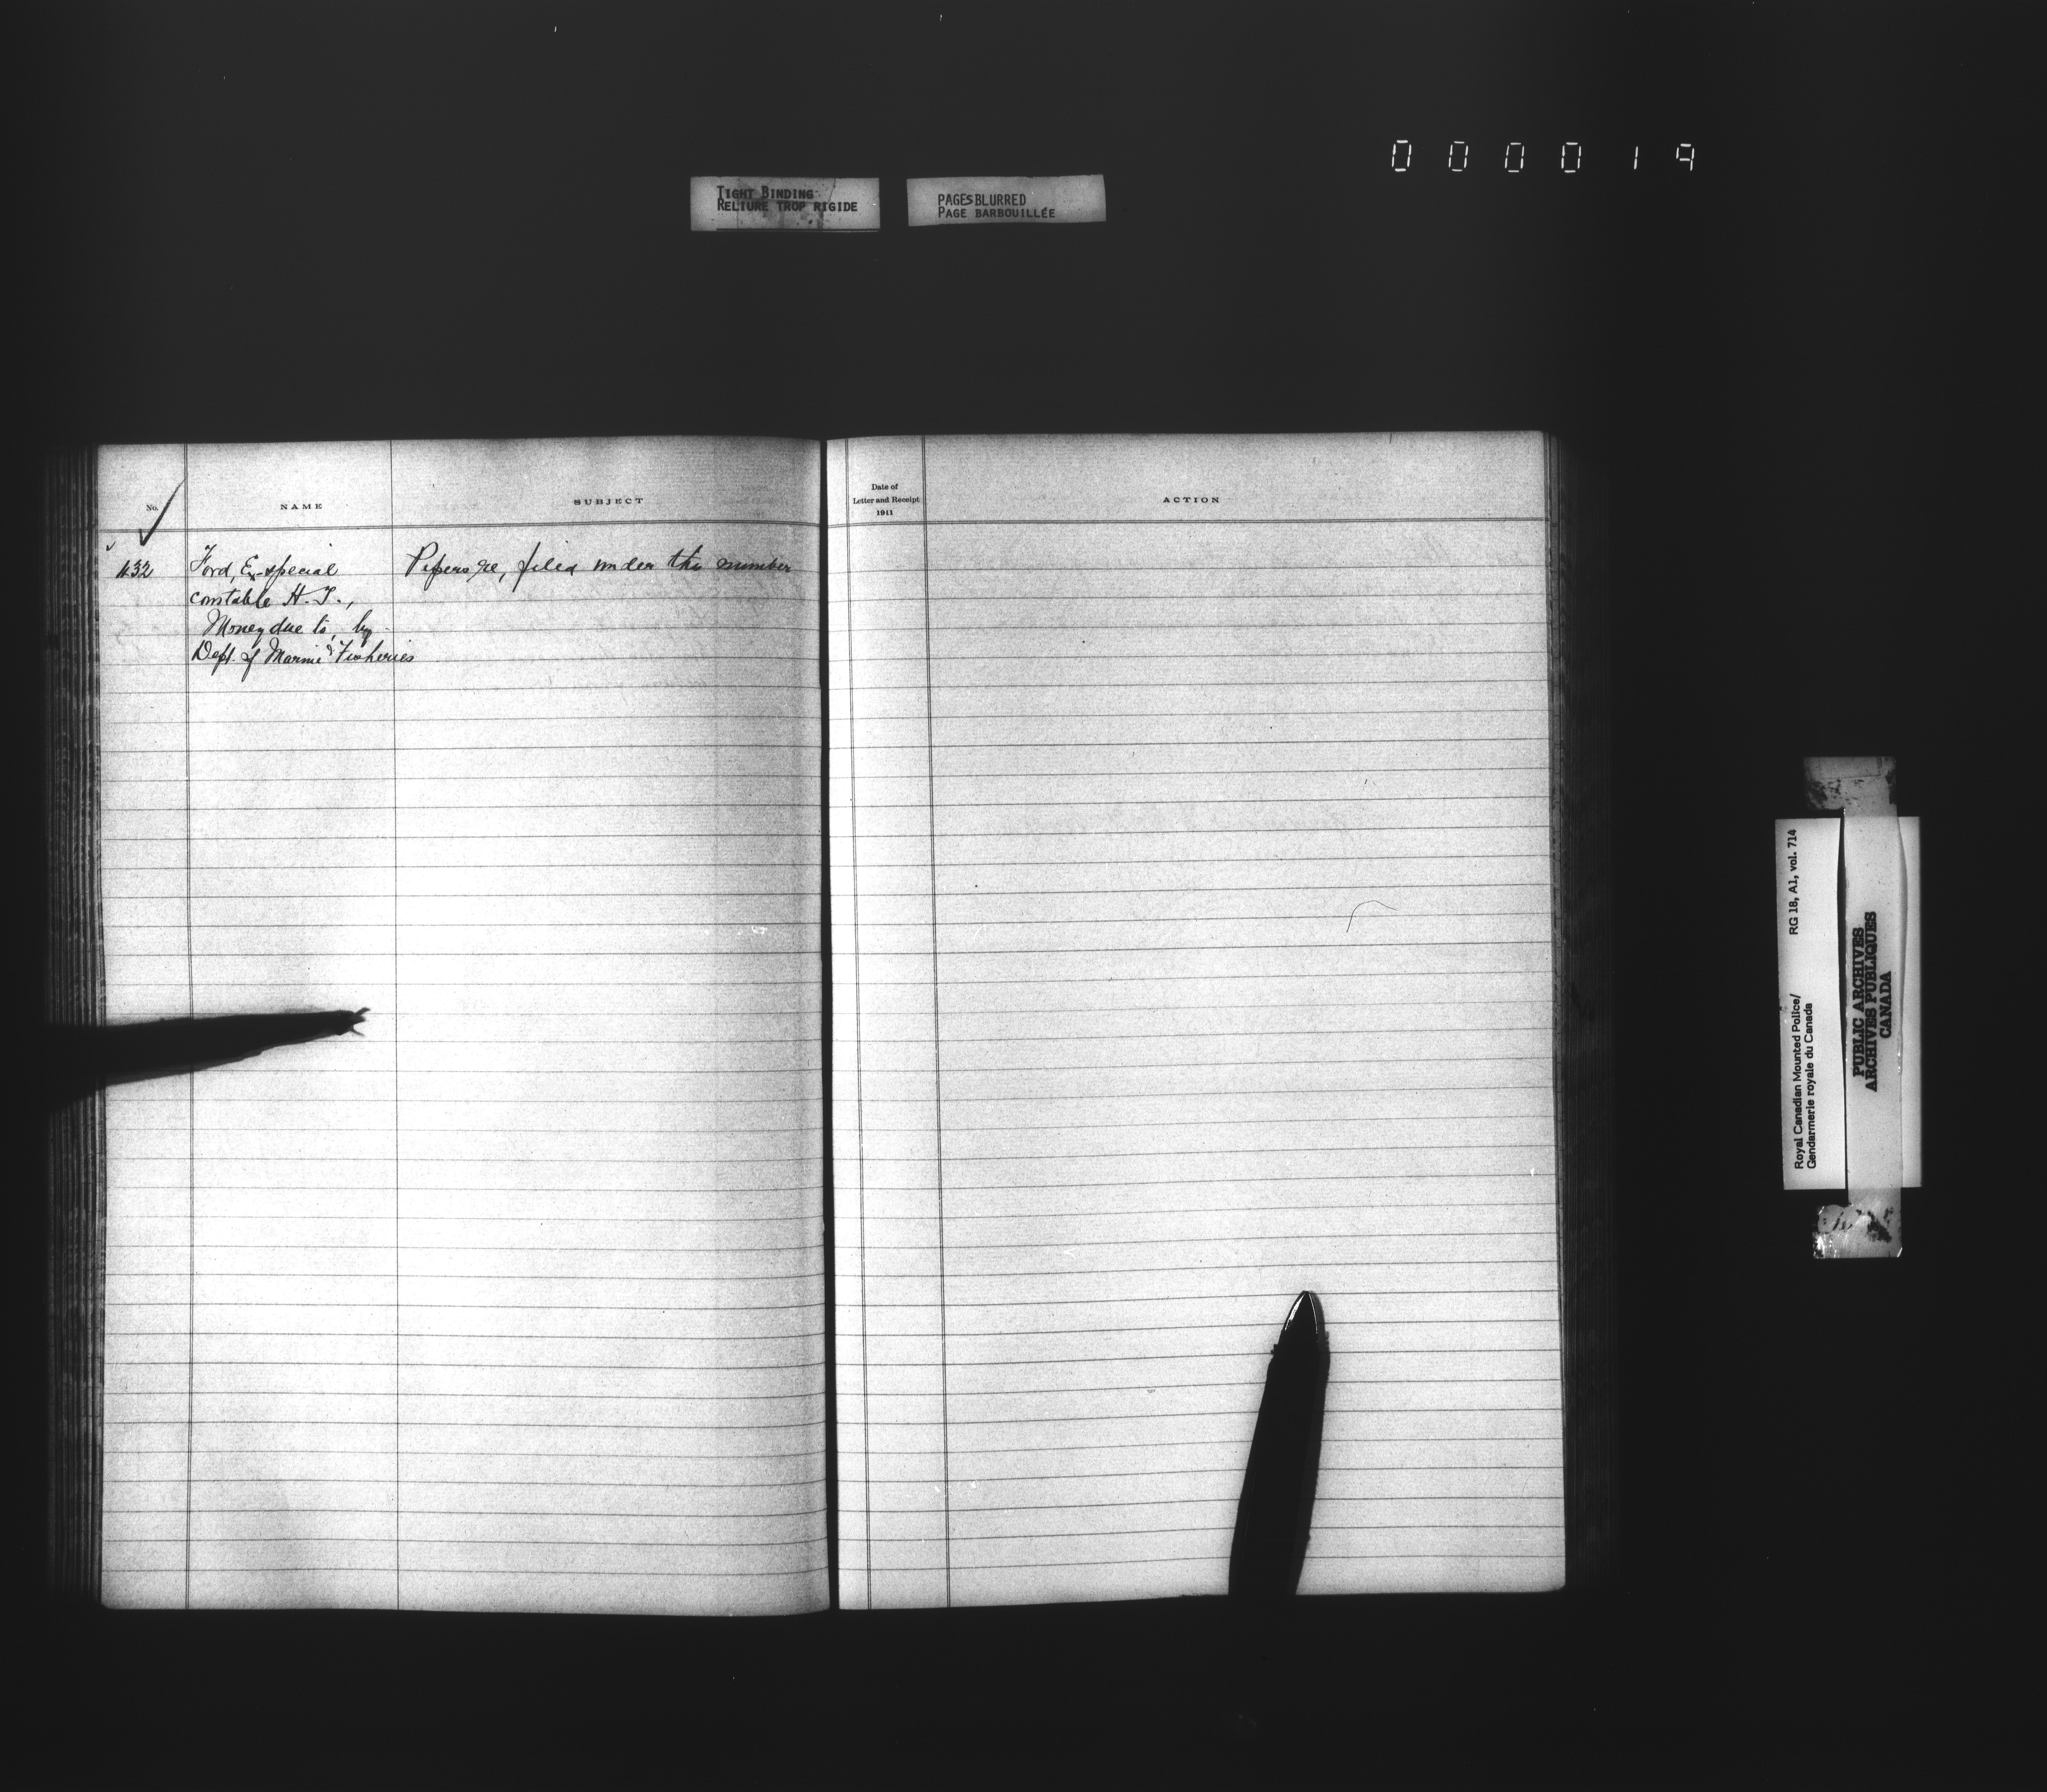 000019
TIGHT BINDING
RELIURE TROP RIGIDE
PAGES BLURRED
PAGE BARBOUILLÉE
No.
NAME
SUBJECT
Date of
Letter and Receipt
1911
ACTION
432
Ford, Ex-special
constable H. T.,
Money due to, by
Dept. of Marine & Fisheries
Papers re, filed under this number
Royal Canadian Mounted Police/
Gendarmerie royale du Canada
RG 18, A1, vol. 714
PUBLIC ARCHIVES
ARCHIVES PUBLIQUES
CANADA